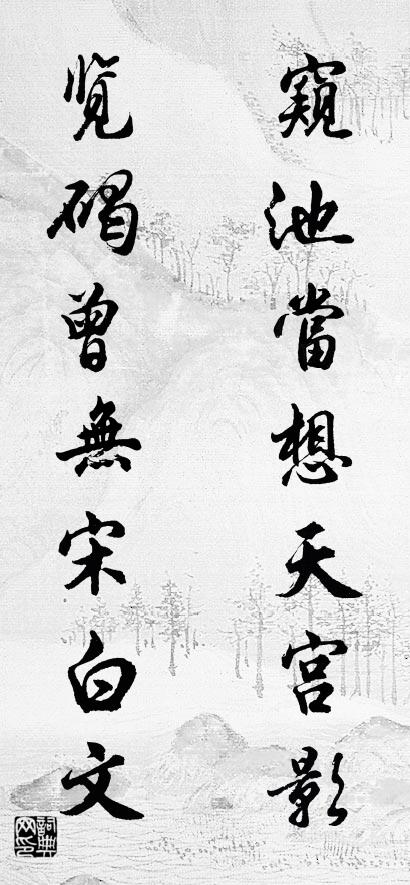 窺池當想天宫影
览碣曾無宋白文
詞典网印